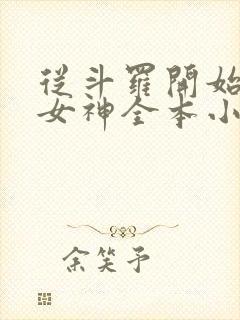 從斗羅開始
女神全本小
余笑予